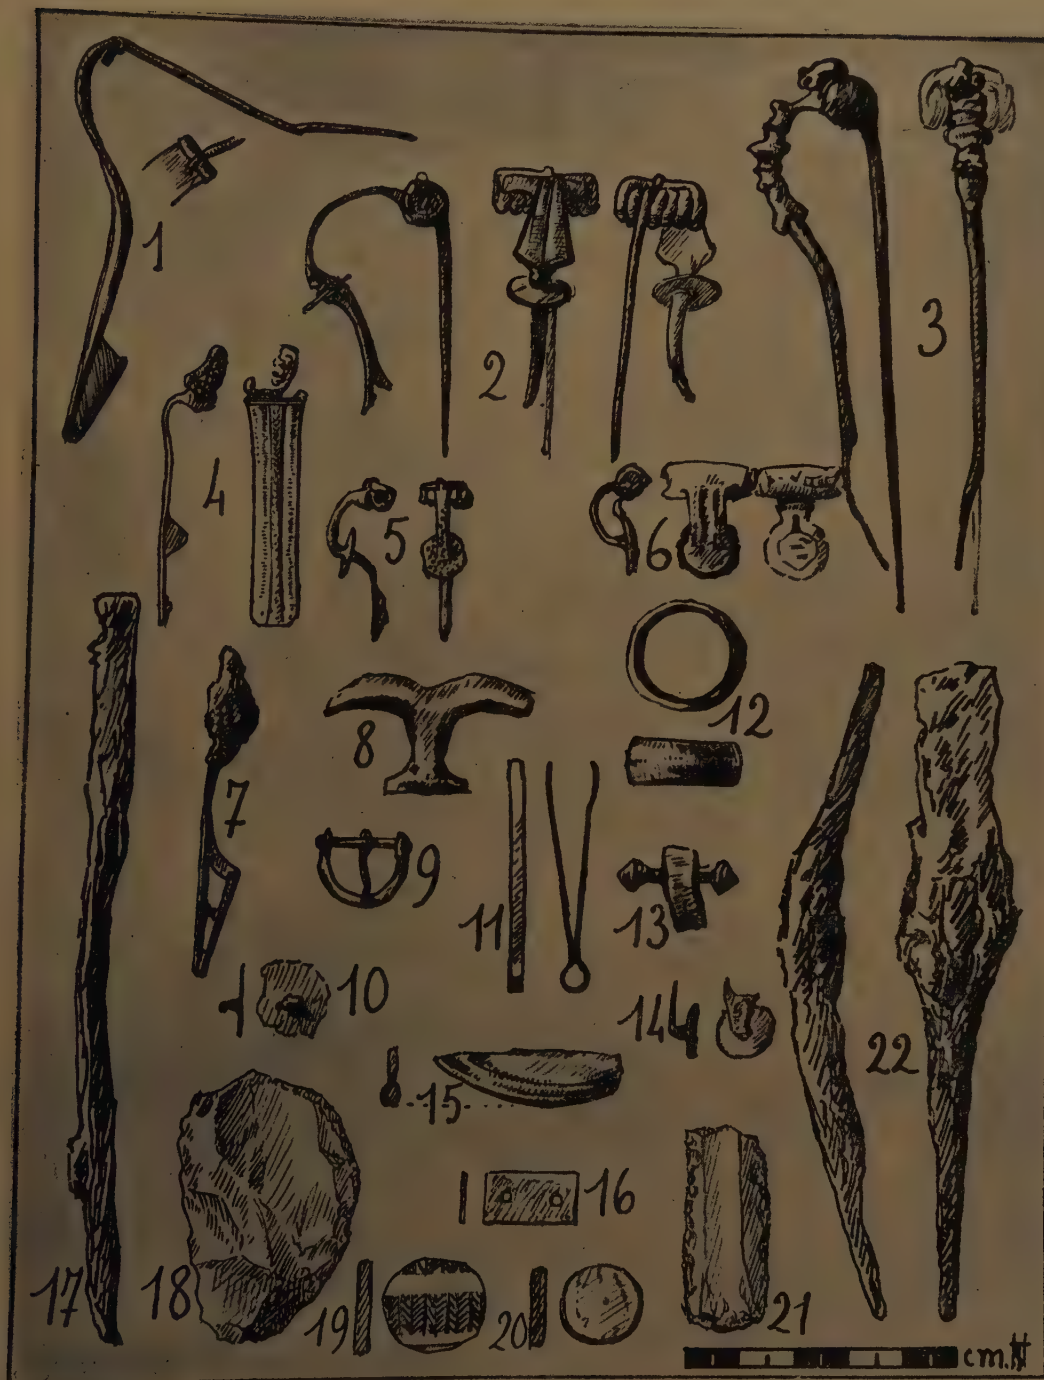 1
2
3
4
5
6
7
8
9
10
11
12
13
14
15
16
17
18
19
20
21
22
cm.